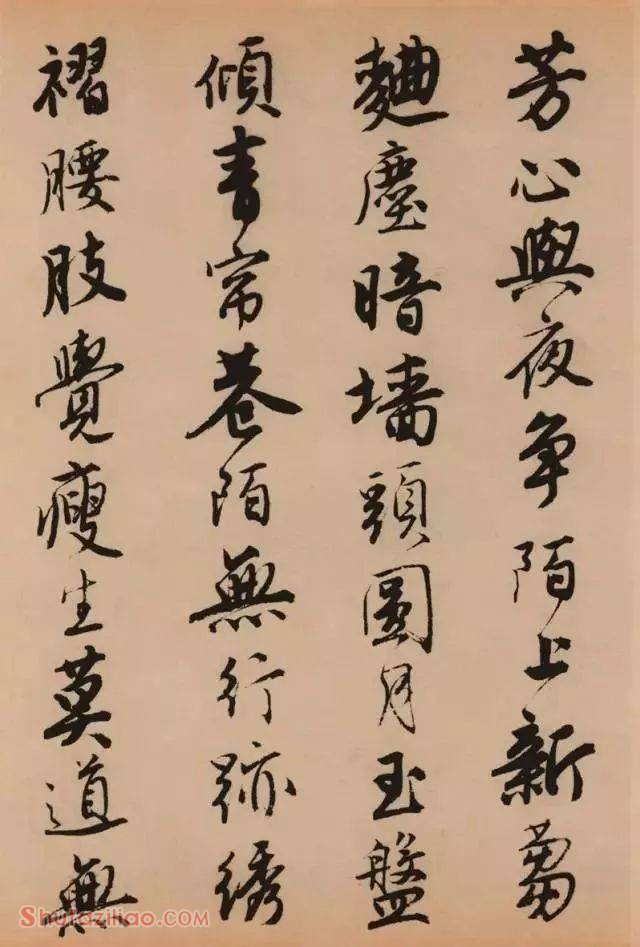 芳心與夜争陌上新蒭
麯塵暗墙頭圓月玉盤
傾青帘巷陌無行跡綉
褶腰肢覺瘦生莫道無
Shufaziliao.com